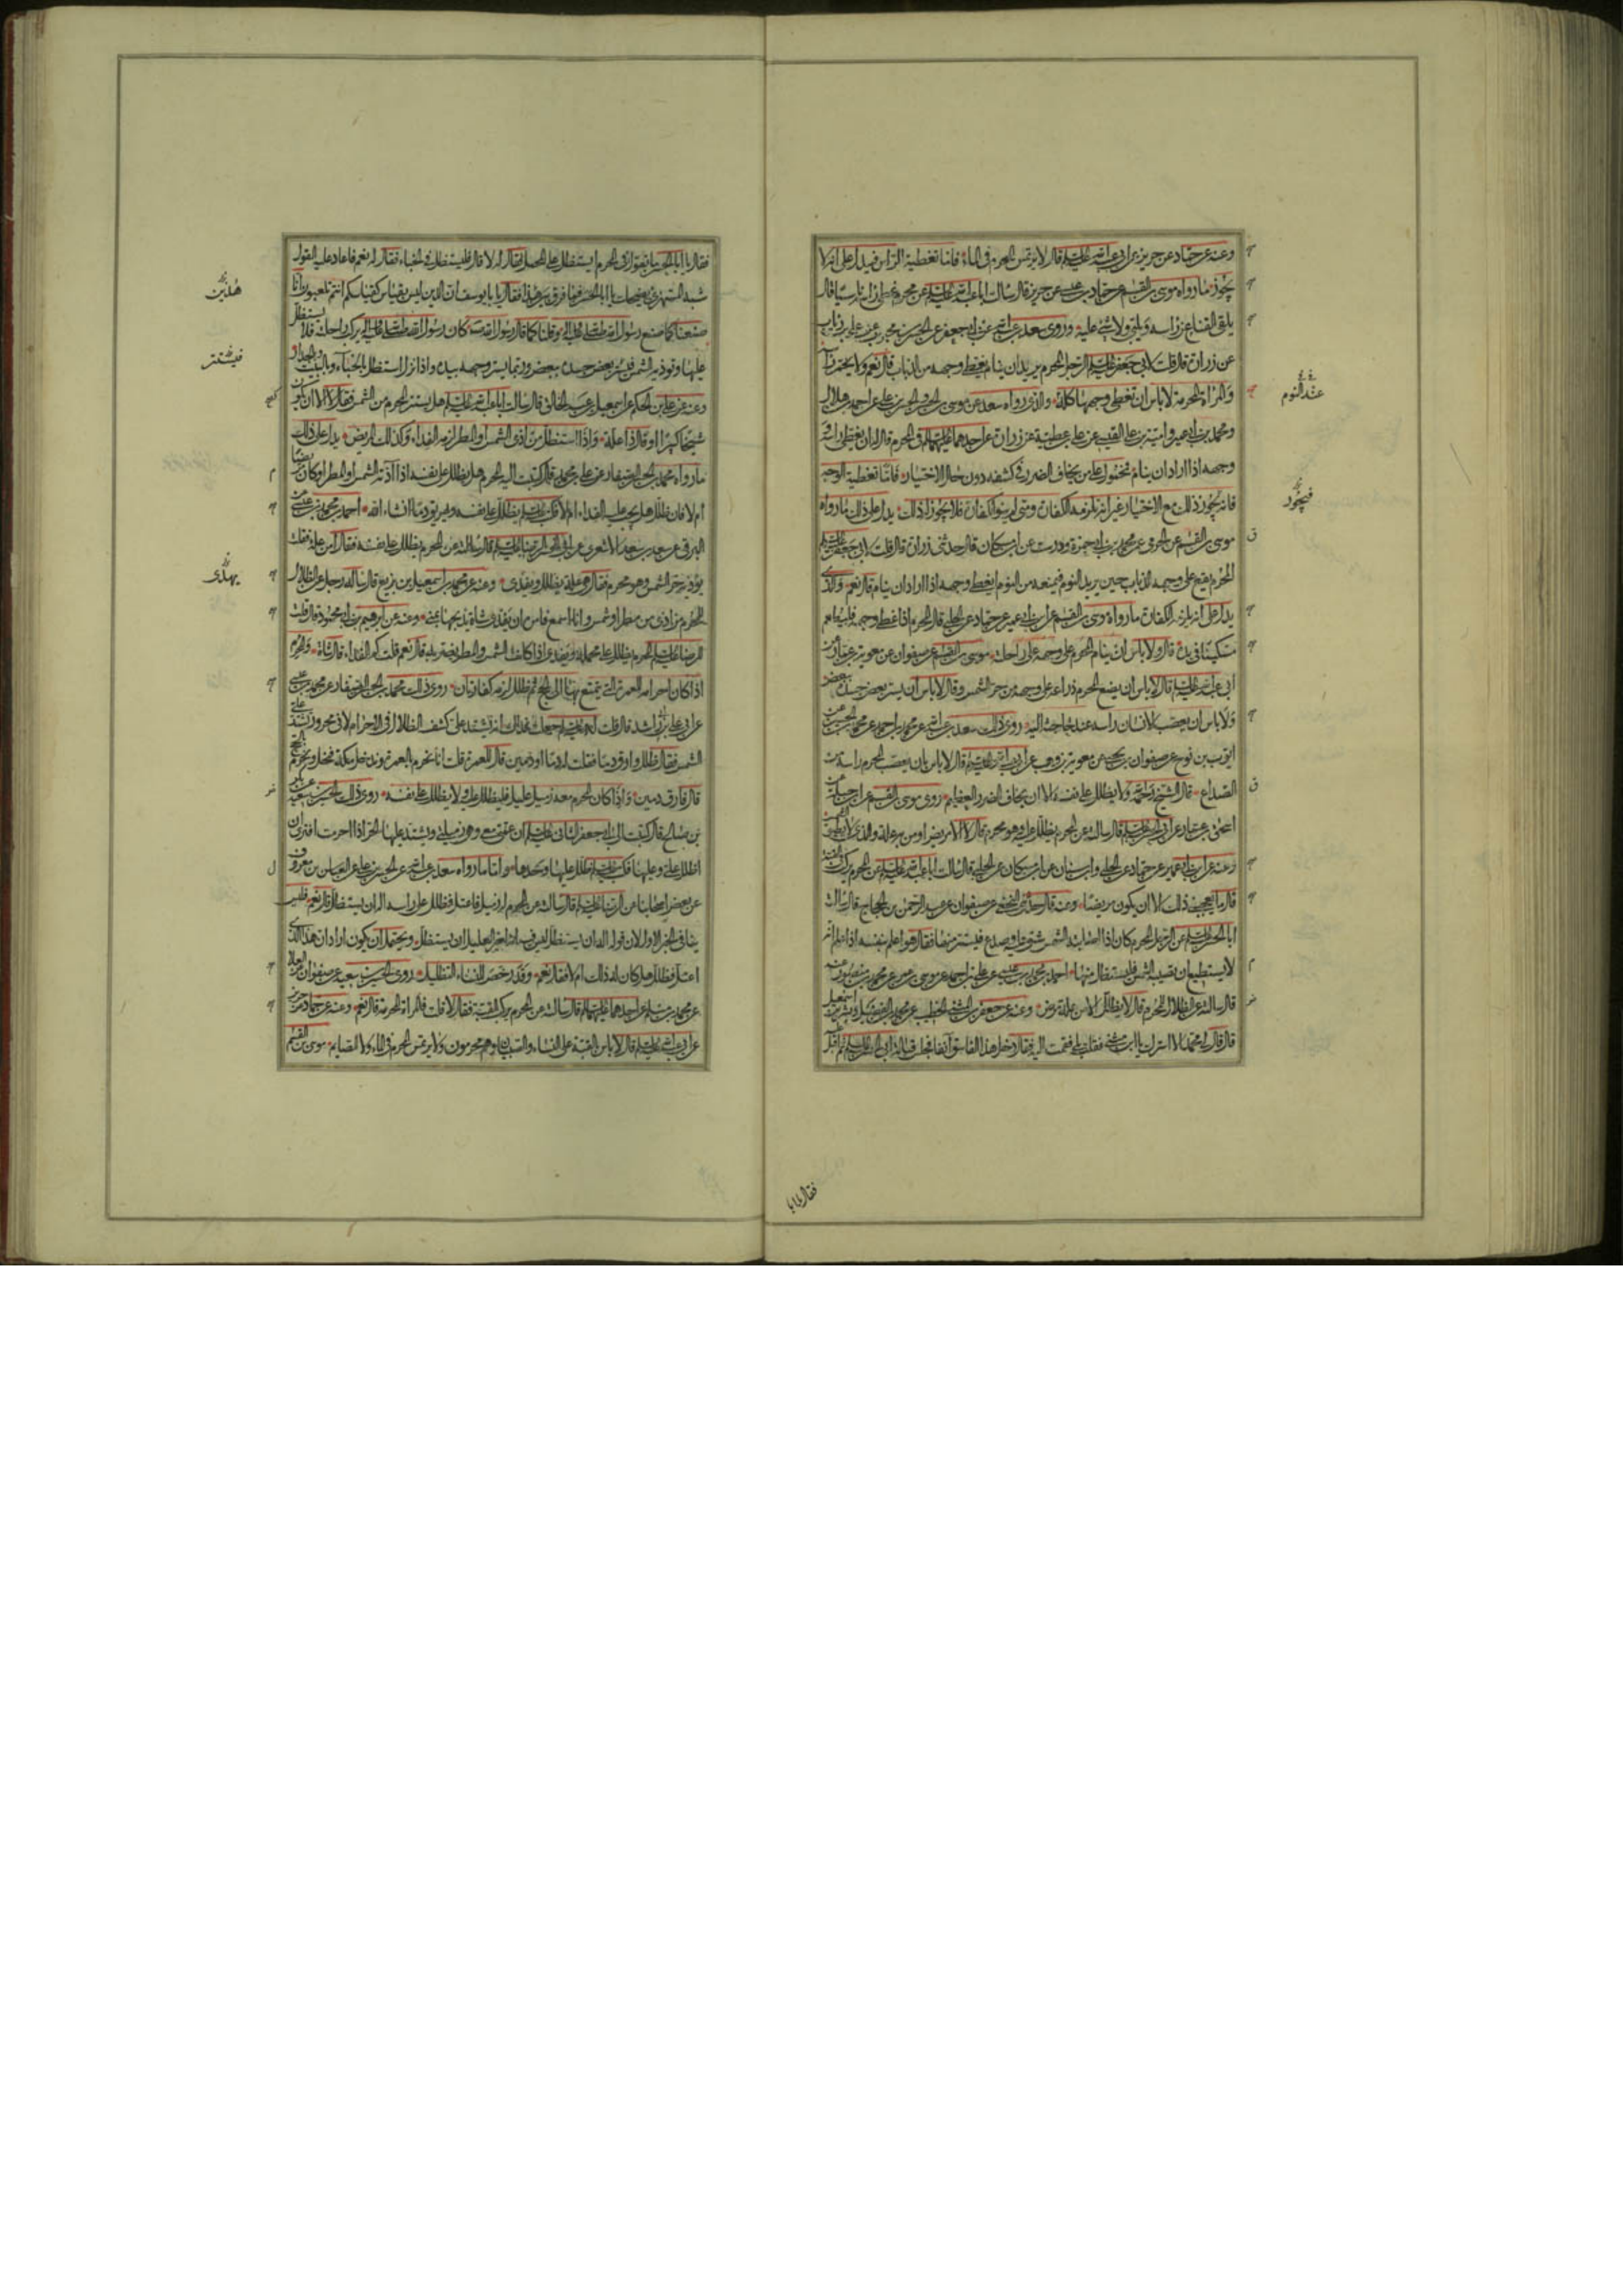 وعنه عن حماد عن حريز عن ابي عبد الله عليه السلم قال لا يرتمس المحرم في الماء فاما تغطية الراس فيدل على انه لا
يجوز ما رواه موسى بن القسم عن حماد بن عيسى عن حريز قال سالت ابا عبد الله عليه السلم عن محرم غطى راسه ناسيا قال
يلقى القناع عن راسه ويلبي ولا شئ عليه وروى سعد بن عبد الله عن ابي جعفر عن الحسن بن محبوب عن علي بن رئاب
عن زرارة قال قلت لابي جعفر عليه السلم الرجل المحرم يريد ان ينام يغطي وجهه من الذباب قال نعم ولا يخمر راسه
والمراة المحرمة لا باس ان تغطي وجهها كله والذي رواه سعد عن موسى بن الحسن والحسن بن علي عن احمد بن هلال
ومحمد بن ابي عمير وامية بن علي القيسي عن علي بن عطية عن زرارة عن احدهما عليهما السلم في المحرم قال له ان يغطي راسه و
وجهه اذا اراد ان ينام فمحمول على من يخاف الضرر في كشفه دون حال الاختيار فاما تغطية الوجه
فانه يجوز ذلك مع الاختيار غير انه يلزمه الكفارة ومتى لم ينو الكفارة فلا يجوز له ذلك يدل على ذلك ما رواه
موسى بن القسم عن الجرمي عن محمد بن ابي حمزة ودرست عن ابن مسكان قال حدثني زرارة قال قلت لابي جعفر عليه السلم
المحرم يقع على وجهه الذباب حين يريد النوم فيمنعه من النوم ايغطي وجهه اذا اراد ان ينام قال نعم والذي
يدل على انه يلزمه الكفارة ما رواه موسى بن القسم عن ابن ابي عمير عن حماد عن الحلبي قال المحرم اذا غطى وجهه فليطعم
مسكينا في يده قال ولا باس ان ينام المحرم على وجهه على راحلته موسى بن القسم عن صفوان عن معوية بن عمار عن
ابي عبد الله عليه السلم قال لا باس ان يضع المحرم ذراعه على وجهه من حر الشمس وقال لا باس ان يستر بعض جسده ببعض
ولا باس ان يعصب الانسان راسه عند الحاجة اليه روى ذلك سعد بن عبد الله عن محمد بن احمد عن محمد بن الحسين عن
ايوب بن نوح عن صفوان بن يحيى عن معوية بن وهب عن ابي عبد الله عليه السلم قال لا باس بان يعصب المحرم راسه من
الصداع قال الشيخ رحمه الله ولا يظلل على نفسه الا ان يخاف الضرر العظيم روى موسى بن القسم عن ابن جبلة عن
اسحق بن عمار عن ابي الحسن عليه السلم قال سالته عن المحرم يظلل عليه وهو محرم قال لا الا مريض او من به علة والذي لا يطيق الشمس
وعنه عن ابن ابي عمير عن حماد عن الحلبي وابن سنان عن ابن مسكان عن الحلبي قال سالت ابا عبد الله عليه السلم عن المحرم يركب في القبة
قال ما يعجبني ذلك الا ان يكون مريضا وعنه قال حدثني النخعي عن صفوان عن عبد الرحمن بن الحجاج قال سالت
ابا الحسن عليه السلم عن الرجل المحرم كان اذا اصابته الشمس شق عليه وصدع فيستتر منها فقال هو اعلم بنفسه اذا علم انه
لا يستطيع ان تصيبه الشمس فليستظل منها احمد بن محمد بن عيسى عن علي بن احمد عن موسى بن عمر عن محمد بن منصور عنه
قال سالته عن الظلال للمحرم قال لا يظلل الا من علة مرض وعنه عن جعفر بن المثنى الخطيب عن محمد بن الفضيل وبشر بن اسمعيل
قال قال لي محمد الا اسرك يا ابن مثنى فقلت بلى فقمت اليه فقال دخل هذا الفاسق آنفا فجلس قبالة ابي الحسن عليه السلم ثم اقبل عليه
عند النوم
فيجوز
فقال يا ابا
فقال يا ابا الحسن ما تقول في المحرم ايستظل على المحمل فقال له لا قال فيستظل في الخباء فقال له نعم فاعاد عليه القول
شبه المستهزئ يضحك يا ابا الحسن فما فرق بين هذا فقال يا ابا يوسف ان الدين ليس بقياس كقياسكم انتم تلعبون انا
صنعنا كما صنع رسول الله صلى الله عليه واله وقلنا كما قال رسول الله كان رسول الله صلى الله عليه واله يركب راحلته فلا يستظل
عليها وتوذيه الشمس فيستر بعض جسده ببعض وربما يستر وجهه بيده واذا نزل استظل بالخباء وبالبيت وبالجدار
وعنه عن علي بن الحكم عن اسمعيل بن عبد الخالق قال سالت ابا عبد الله عليه السلم هل يستتر المحرم من الشمس فقال لا الا ان يكون
شيخا كبيرا او قال ذا علة واذا استظل من اذى الشمس او المطر لزمه الفداء وكذلك المريض يدل على ذلك
ما رواه محمد بن الحسن الصفار عن علي بن محمد قال كتبت اليه المحرم هل يظلل على نفسه اذا آذته الشمس او المطر او كان مريضا
ام لا فان ظلل هل يجب عليه الفداء ام لا فكتب عليه السلم يظلل على نفسه ويهريق دما ان شاء الله احمد بن محمد بن عيسى عن
البرقي عن سعد بن سعد الاشعري عن ابي الحسن الرضا عليه السلم قال سالته عن المحرم يظلل على نفسه فقال امن علة فقلت
يؤذيه حر الشمس وهو محرم فقال هي علة يظلل ويفدي وعنه عن محمد بن اسمعيل بن بزيع قال ساله رجل عن الظلال
للمحرم من اذى من مطر او شمس وانا اسمع فامره ان يفدي شاة يذبحها بمنى وعنه عن ابرهيم بن ابي محمود قال قلت
للرضا عليه السلم المحرم يظلل على محمله ويفدي اذا كانت الشمس والمطر يضر به قال نعم قلت كم الفداء قال شاة والمحرم
اذا كان احرامه للعمرة التي يتمتع بها الى الحج ثم ظلل لزمه كفارتان روى ذلك محمد بن الحسن الصفار عن محمد بن عيسى
عن ابي علي بن راشد قال قلت له عليه السلم جعلت فداك انه يشتد علي كشف الظلال في الاحرام لاني محرور تشتد علي
الشمس فقال ظلل وارق دما فقلت له دما او دمين قال للعمرة قلت انا نحرم بالعمرة وندخل مكة فنحل ونحرم بالحج
قال فارق دمين واذا كان المحرم معه زميل عليل فليظلل عليه ولا يظلل على نفسه روى ذلك الحسين بن سعيد عن بكر
بن صالح قال كتبت الى ابي جعفر الثاني عليه السلم ان عمتي معي وهي زميلتي ويشتد عليها الحر اذا احرمت افترى ان
اظلل علي وعليها فكتب عليه السلم ظلل عليها وحدها واما ما رواه سعد بن عبد الله عن الحسن بن علي عن العباس بن معروف
عن بعض اصحابنا عن الرضا عليه السلم قال سالته عن المحرم له زميل فاعتل فظلل على راسه اله ان يستظل قال نعم فليس
ينافي الخبر الاول لان قوله اله ان يستظل ليس فيه انه لغير العليل ان يستظل ويحتمل ان يكون اراد ان هذا الذي
اعتل فظلل هل كان له ذلك ام لا فقال نعم وقد رخص للنساء التظليل روى الحسين بن سعيد عن صفوان عن العلا
عن محمد بن مسلم عن احدهما عليهما السلم قال سالته عن المحرم يركب القبة فقال لا قلت فالمراة المحرمة قال نعم وعنه عن حماد عن حريز
عن ابي عبد الله عليه السلم قال لا باس بالقبة على النساء والصبيان وهم محرمون ولا يرتمس المحرم في الماء ولا الصائم موسى بن القسم
هذين
فيستتر
يهدى